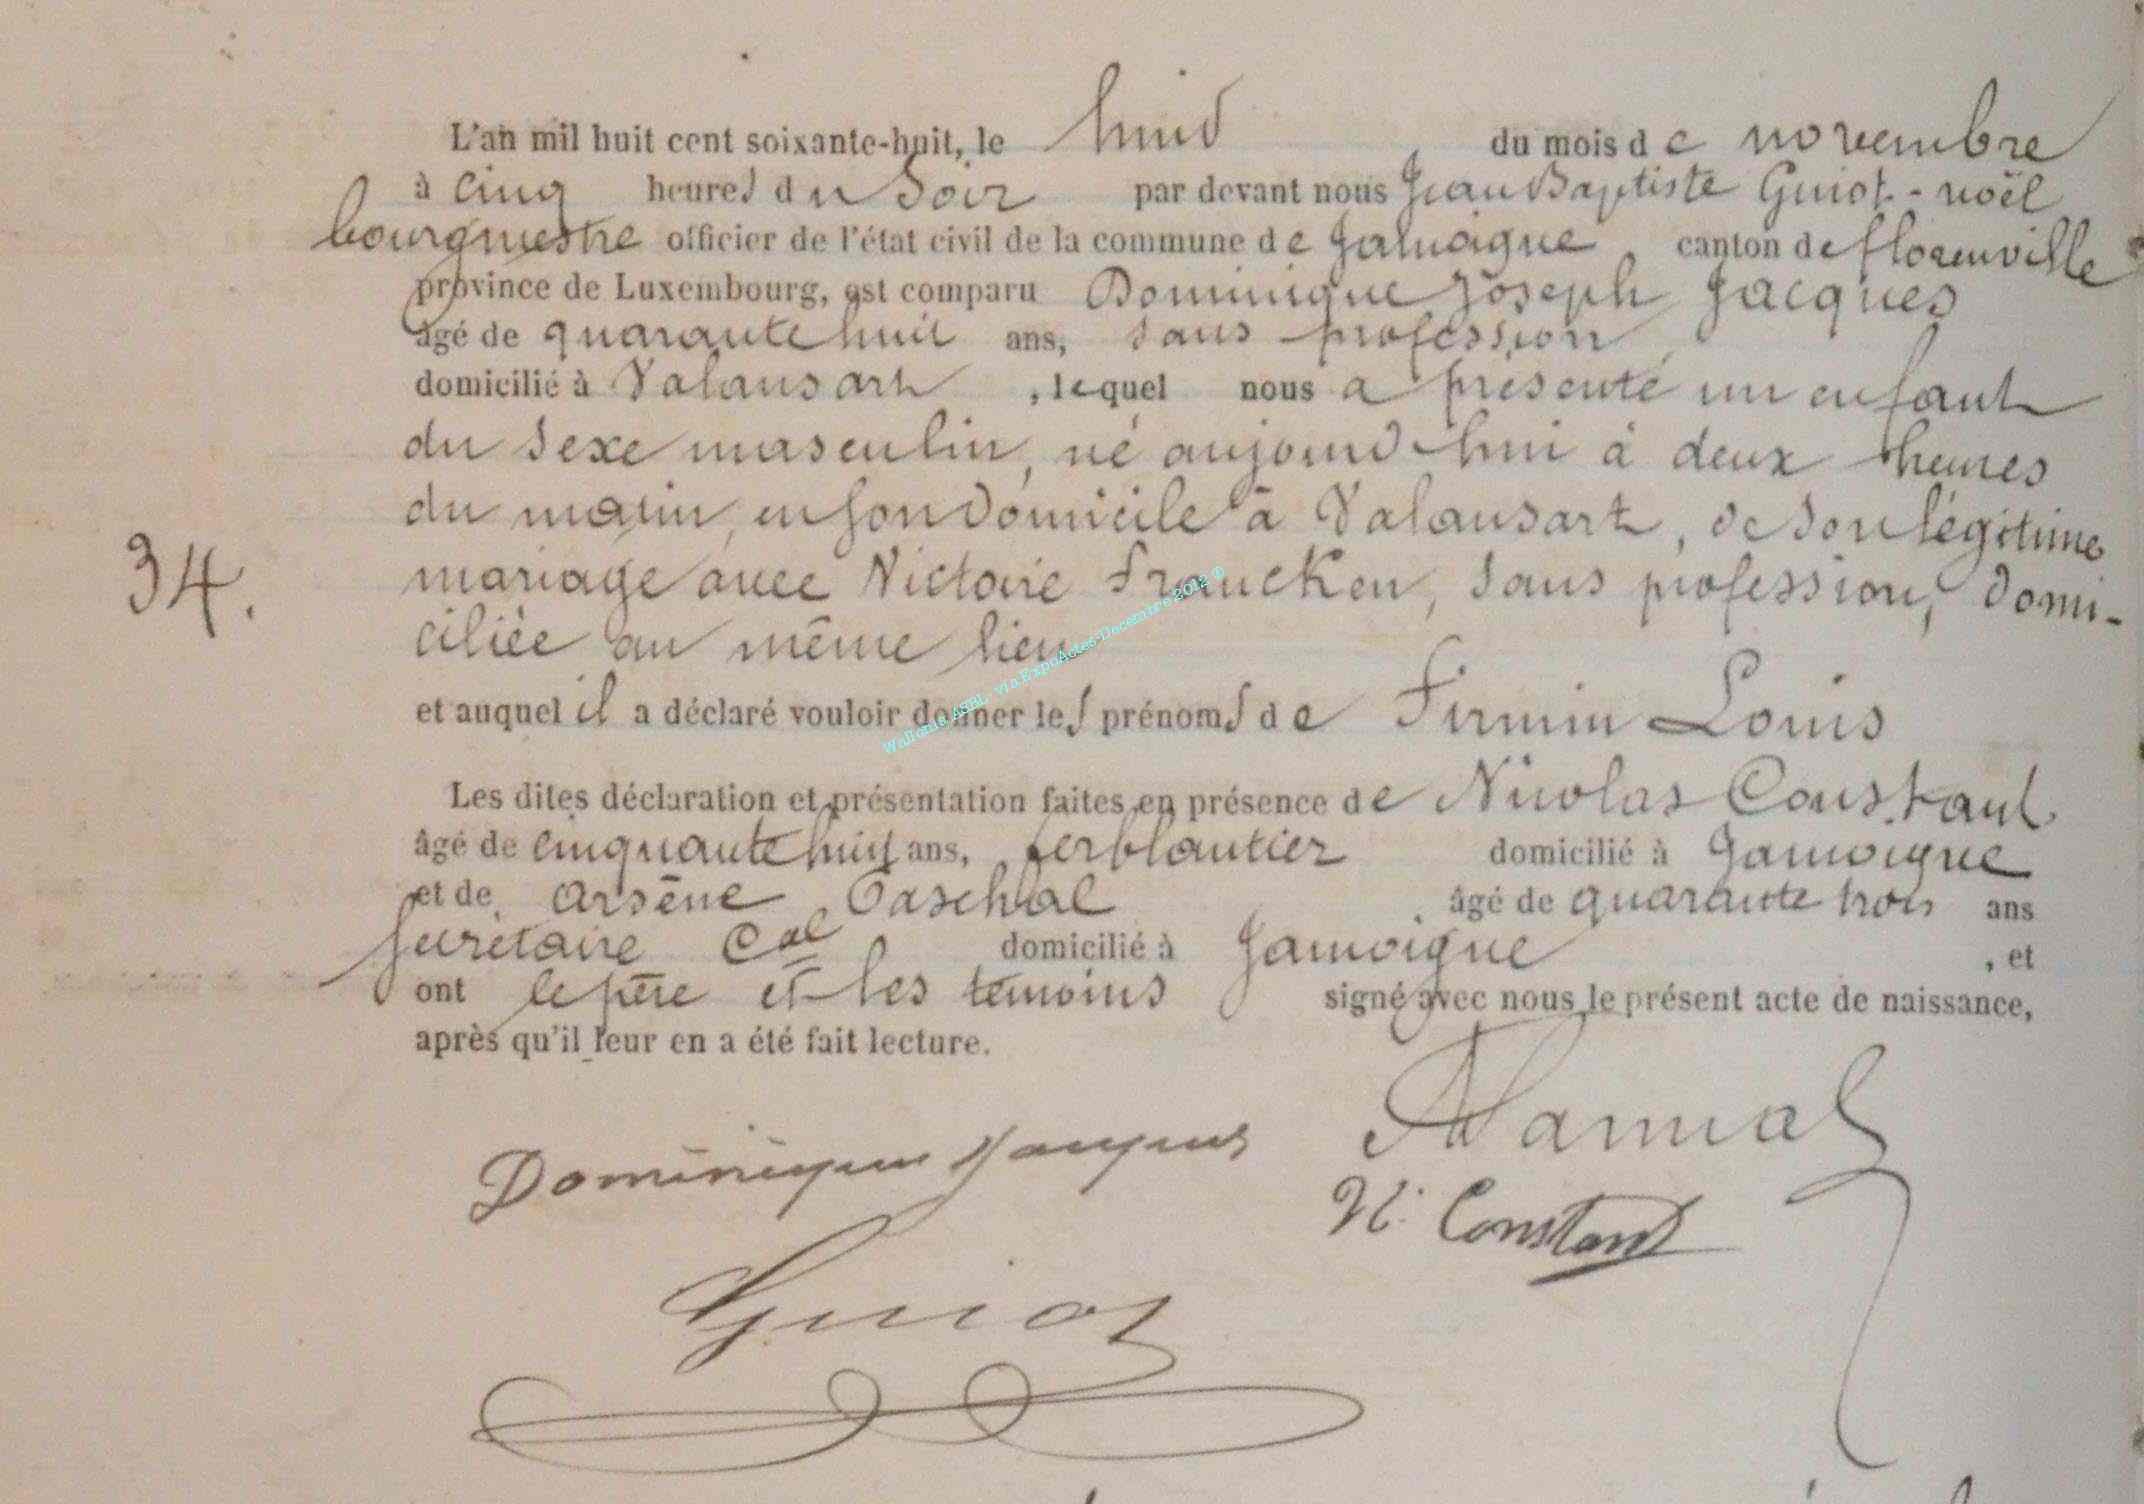 L'an mil huit cent soixante-huit, le huit du mois de novembre
à cinq heures du soir par devant nous Jean Baptiste Guiot-noël
bourgmestre officier de l'état civil de la commune de Jamoigne, canton de florenville
province de Luxembourg, est comparu Dominique Joseph Jacques
âgé de quarante huit ans, sans profession
domicilié à Valansart, lequel nous a présenté un enfant
du sexe masculin, né aujourd'hui à deux heures
du matin, en son domicile à Valansart, de son légitime
34.
mariage avec Victoire Francken, sans profession, domi-
ciliée au même lieu
et auquel il a déclaré vouloir donner les prénoms de Firmin Louis
Wallonie ASBL - via ExpoActes-Decembre 2012 ©
Les dites déclaration et présentation faites en présence de Nicolas Constant
âgé de cinquante huit ans, ferblantier domicilié à Jamoigne
et de Arsène Paschal âgé de quarante trois ans
secrétaire Cal domicilié à Jamoigne, et
ont le père et les témoins signé avec nous le présent acte de naissance,
après qu'il leur en a été fait lecture.
Dominique Jacques
N. Constant
Guiot